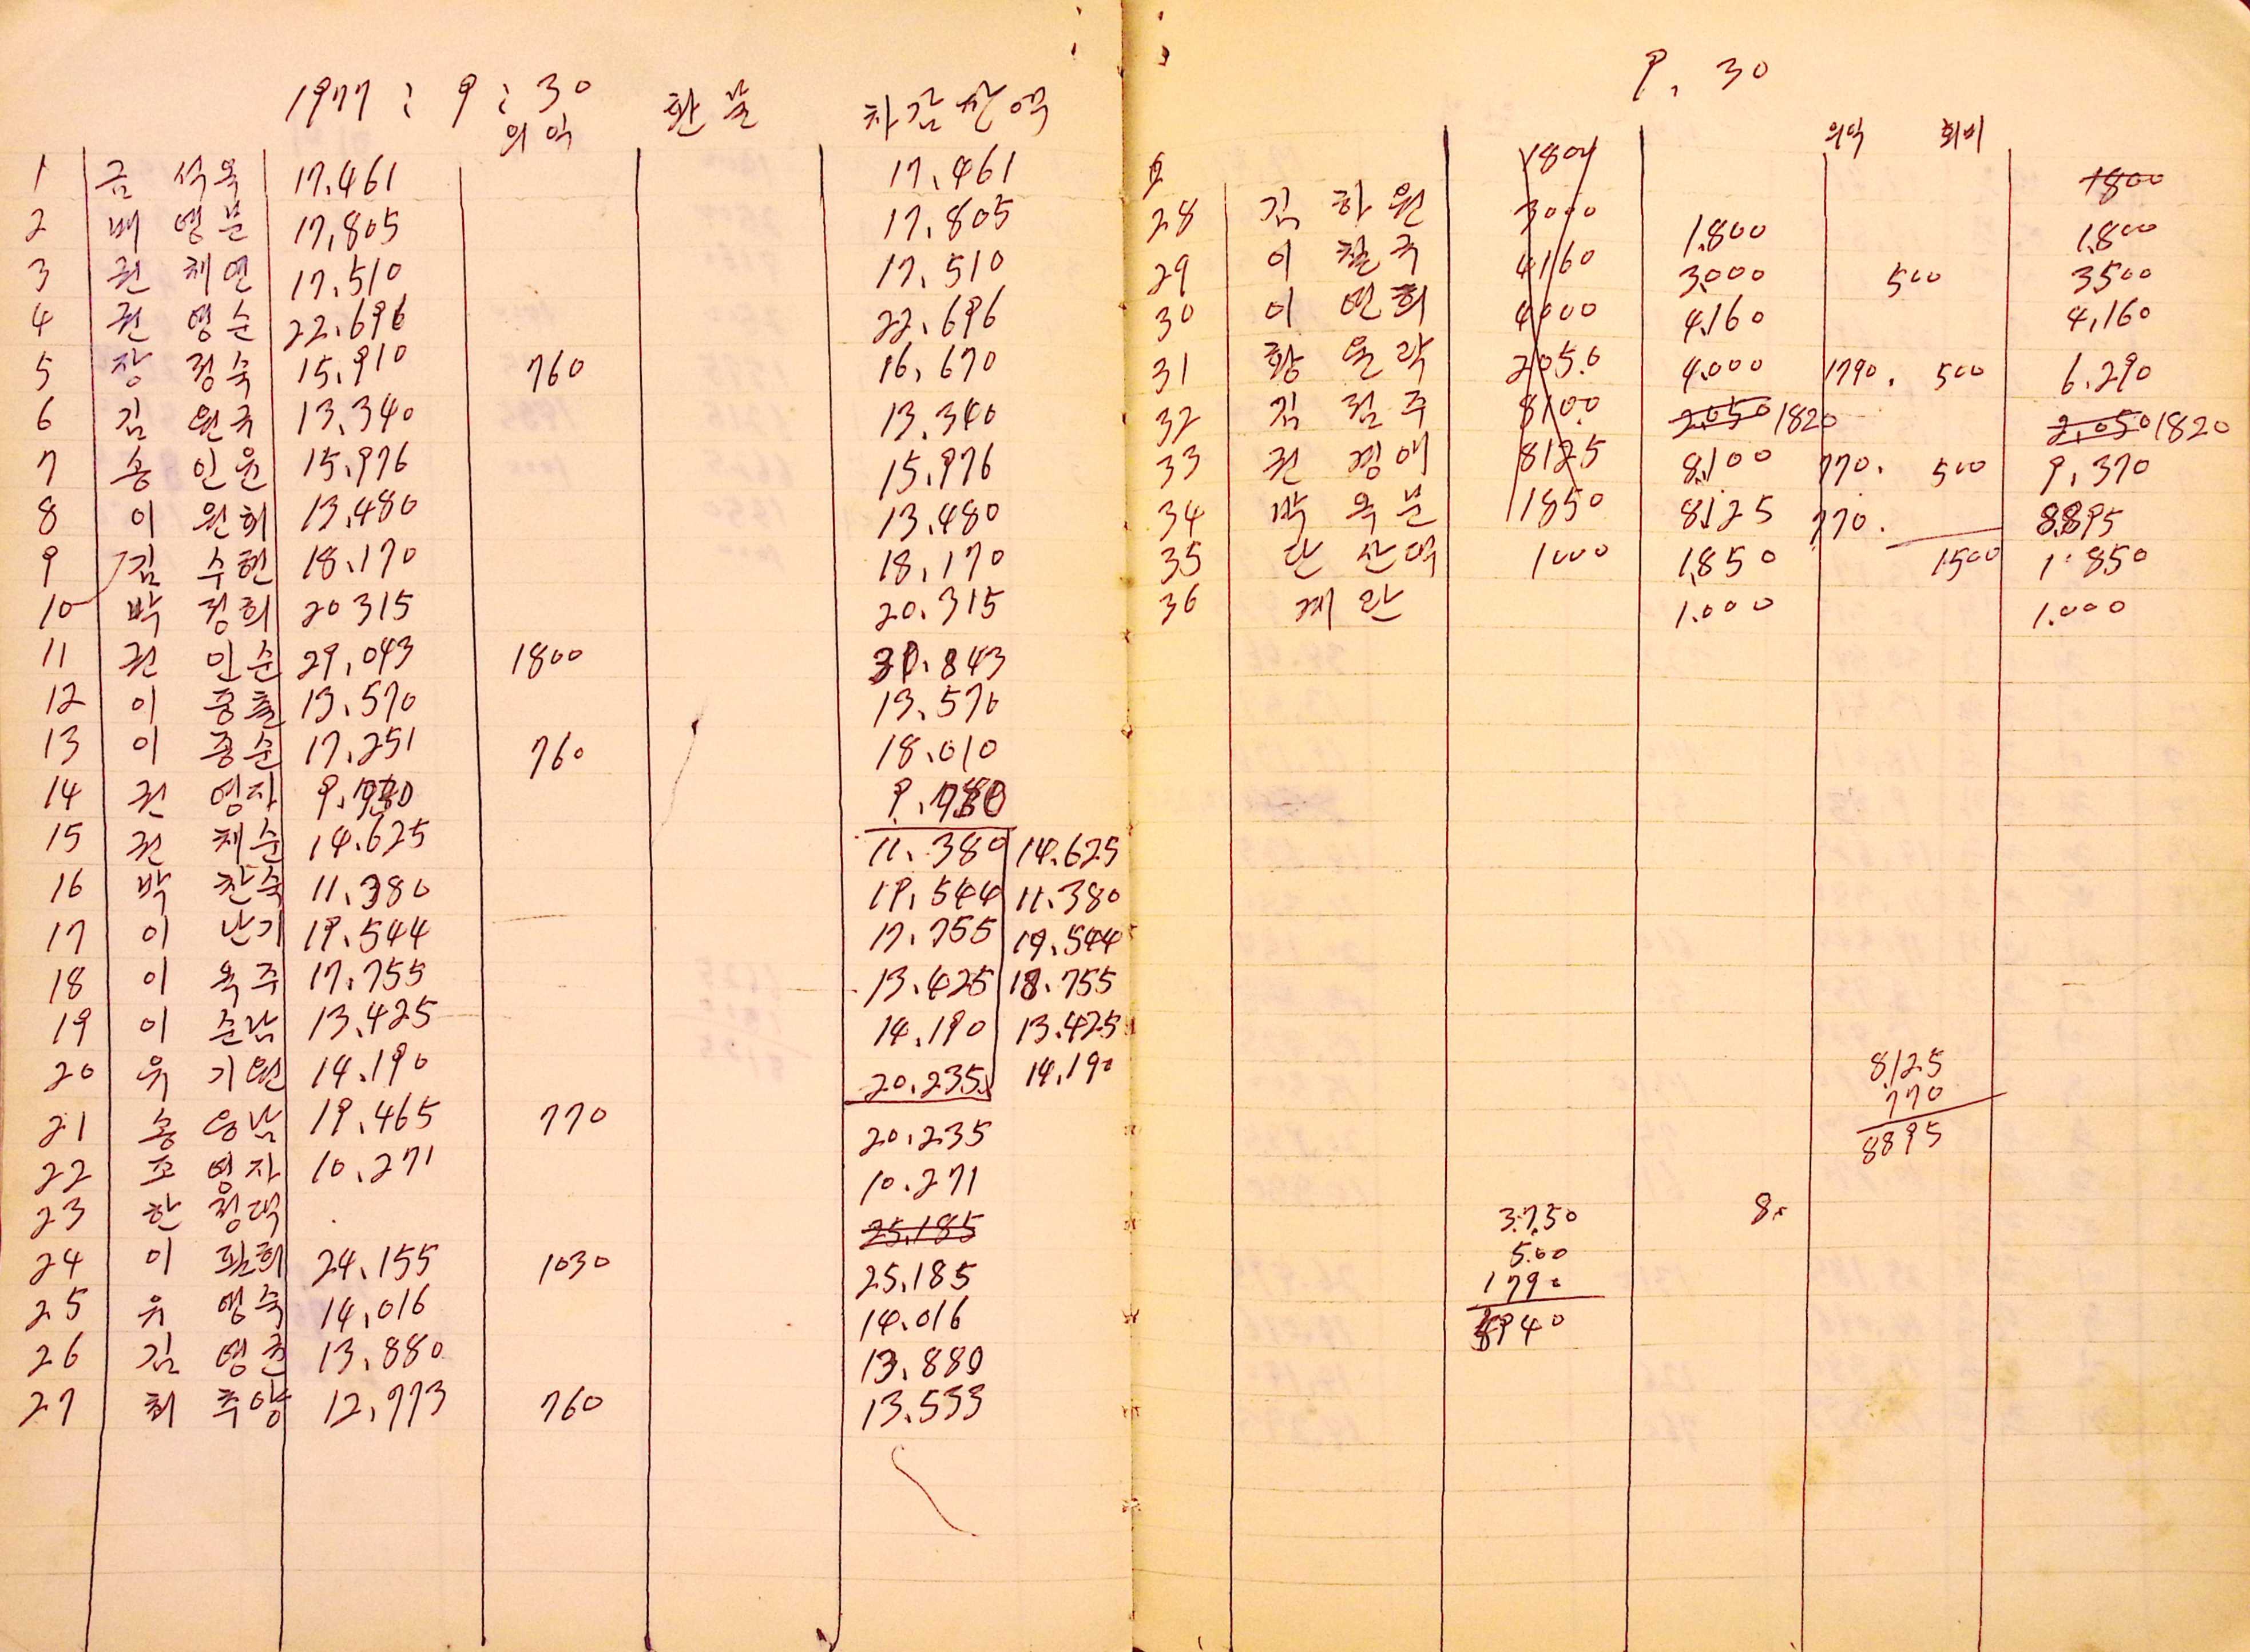 1977 : 9 : 30
의익 환불 차감잔액
1 금석옥 17.461 17.461
2 배영분 17,805 17.805
3 권채연 17.510 17.510
4 권영순 22.696 22.696
5 장정숙 15.910 760 16.670
6 김원국 13.340 13.340
7 송인윤 15.976 15.976
8 이원희 13.480 13.480
9 김수현 18.170 18.170
10 박정희 20315 20.315
11 권인순 29.043 1800 30.843
12 이중출 13.570 13.570
13 이종순 17.251 760 18.010
14 권영자
15 권채순 14.625 11.380 14.625
16 박찬숙 11.380 19.544 11.380
17 이난기 19.544 17.755 19.544
18 이옥주 17.755 13.425 18.755
19 이순남 13.425 14.190 13.425
20 유기원 14.190 20.235 14.190
21 송응남 19.465 770 20.235
22 조영자 10.271 10.271
23 한정댁 25.185
24 이필희 24.155 1030 25.185
25 유영숙 14.016 14.016
26 김영근 13.880 13.880
27 최추양 12.773 760 13.533
9. 30
의익 회비
1800 1800
28 김하원 3000 1.800 1.800
29 이철국 4160 3.000 500 3500
30 이연희 4000 4.160 4,160
31 황윤락 2050 4.000 1790. 500 6.290
32 김점주 8100 2.050 1820 2,050 1820
33 권경애 8125 8.100 770. 500 9.370
34 박옥분 1850 8.125 770. 8.895
35 단산댁 1000 1.850 1500 1.850
36 계란 1.000 1.000
8.125
770
8895
3.750 8.
500
1790